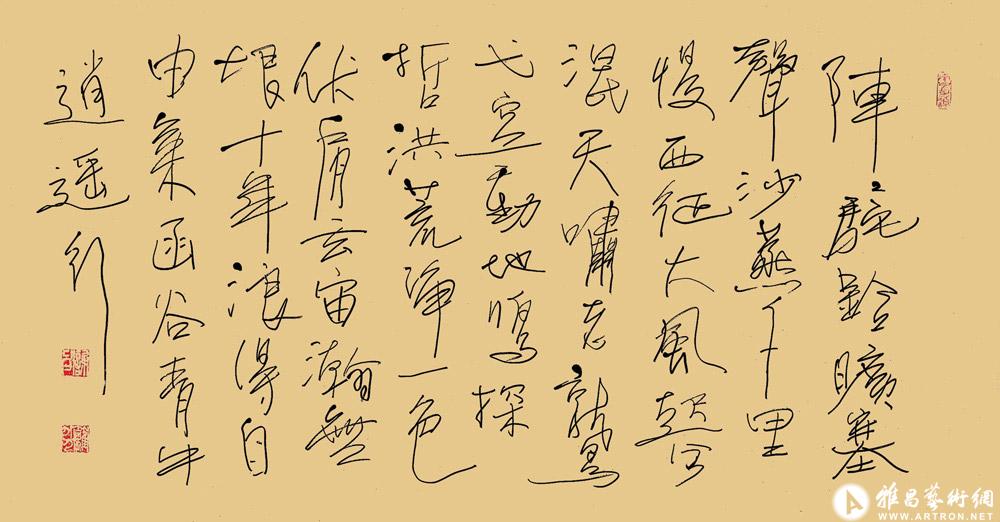 陣〻駝鈴曠塞
聲沙燕千里
慢西征大風起兮
混天嘯志鷙
弋空動地鳴探
哲洪荒一色
伏宙瀚無
垠十年浪得自
由函谷青牛
逍遥行
雅昌藝術網
WWW.ARTRON.NET